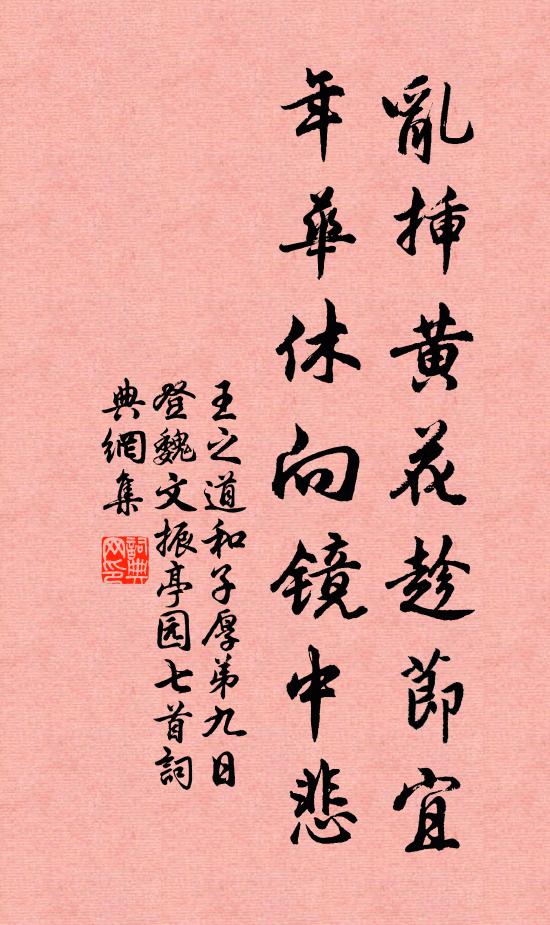 亂挿黄花趁節宜
年華休向镜中悲
王之道和子厚弟九日
登魏文振亭园七首詞
典網集
詞典网印